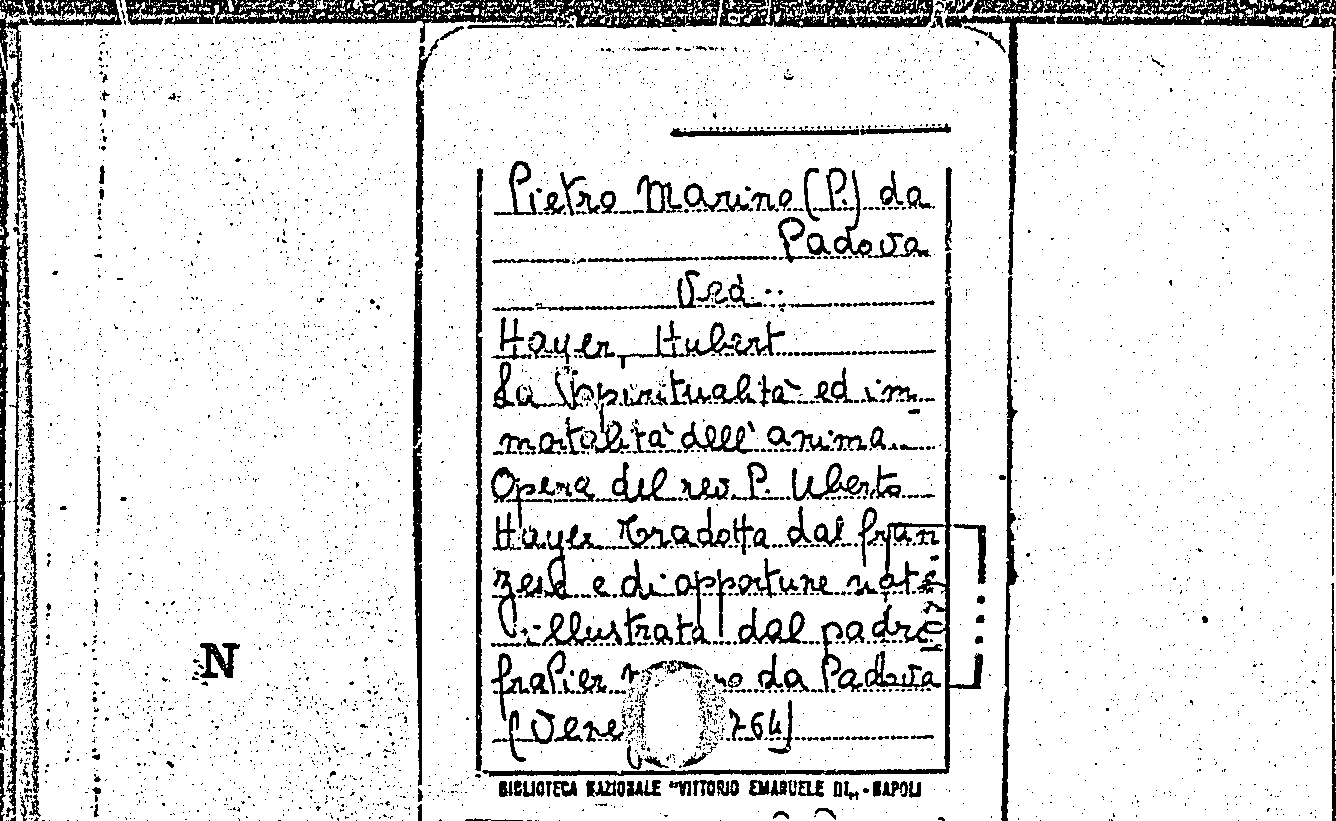 Pietro Marino (P.) da
Padova
Ved..
Hayer, Hubert
La Spiritualità ed im
mortalità dell'anima..
Opera del rev. P. Uberto
Hayer Tradotta dal fran
zese e di opportune note
illustrata dal padre
fra Pier da Padova
N
BIBLIOTECA NAZIONALE "VITTORIO EMANUELE III„ - NAPOLI